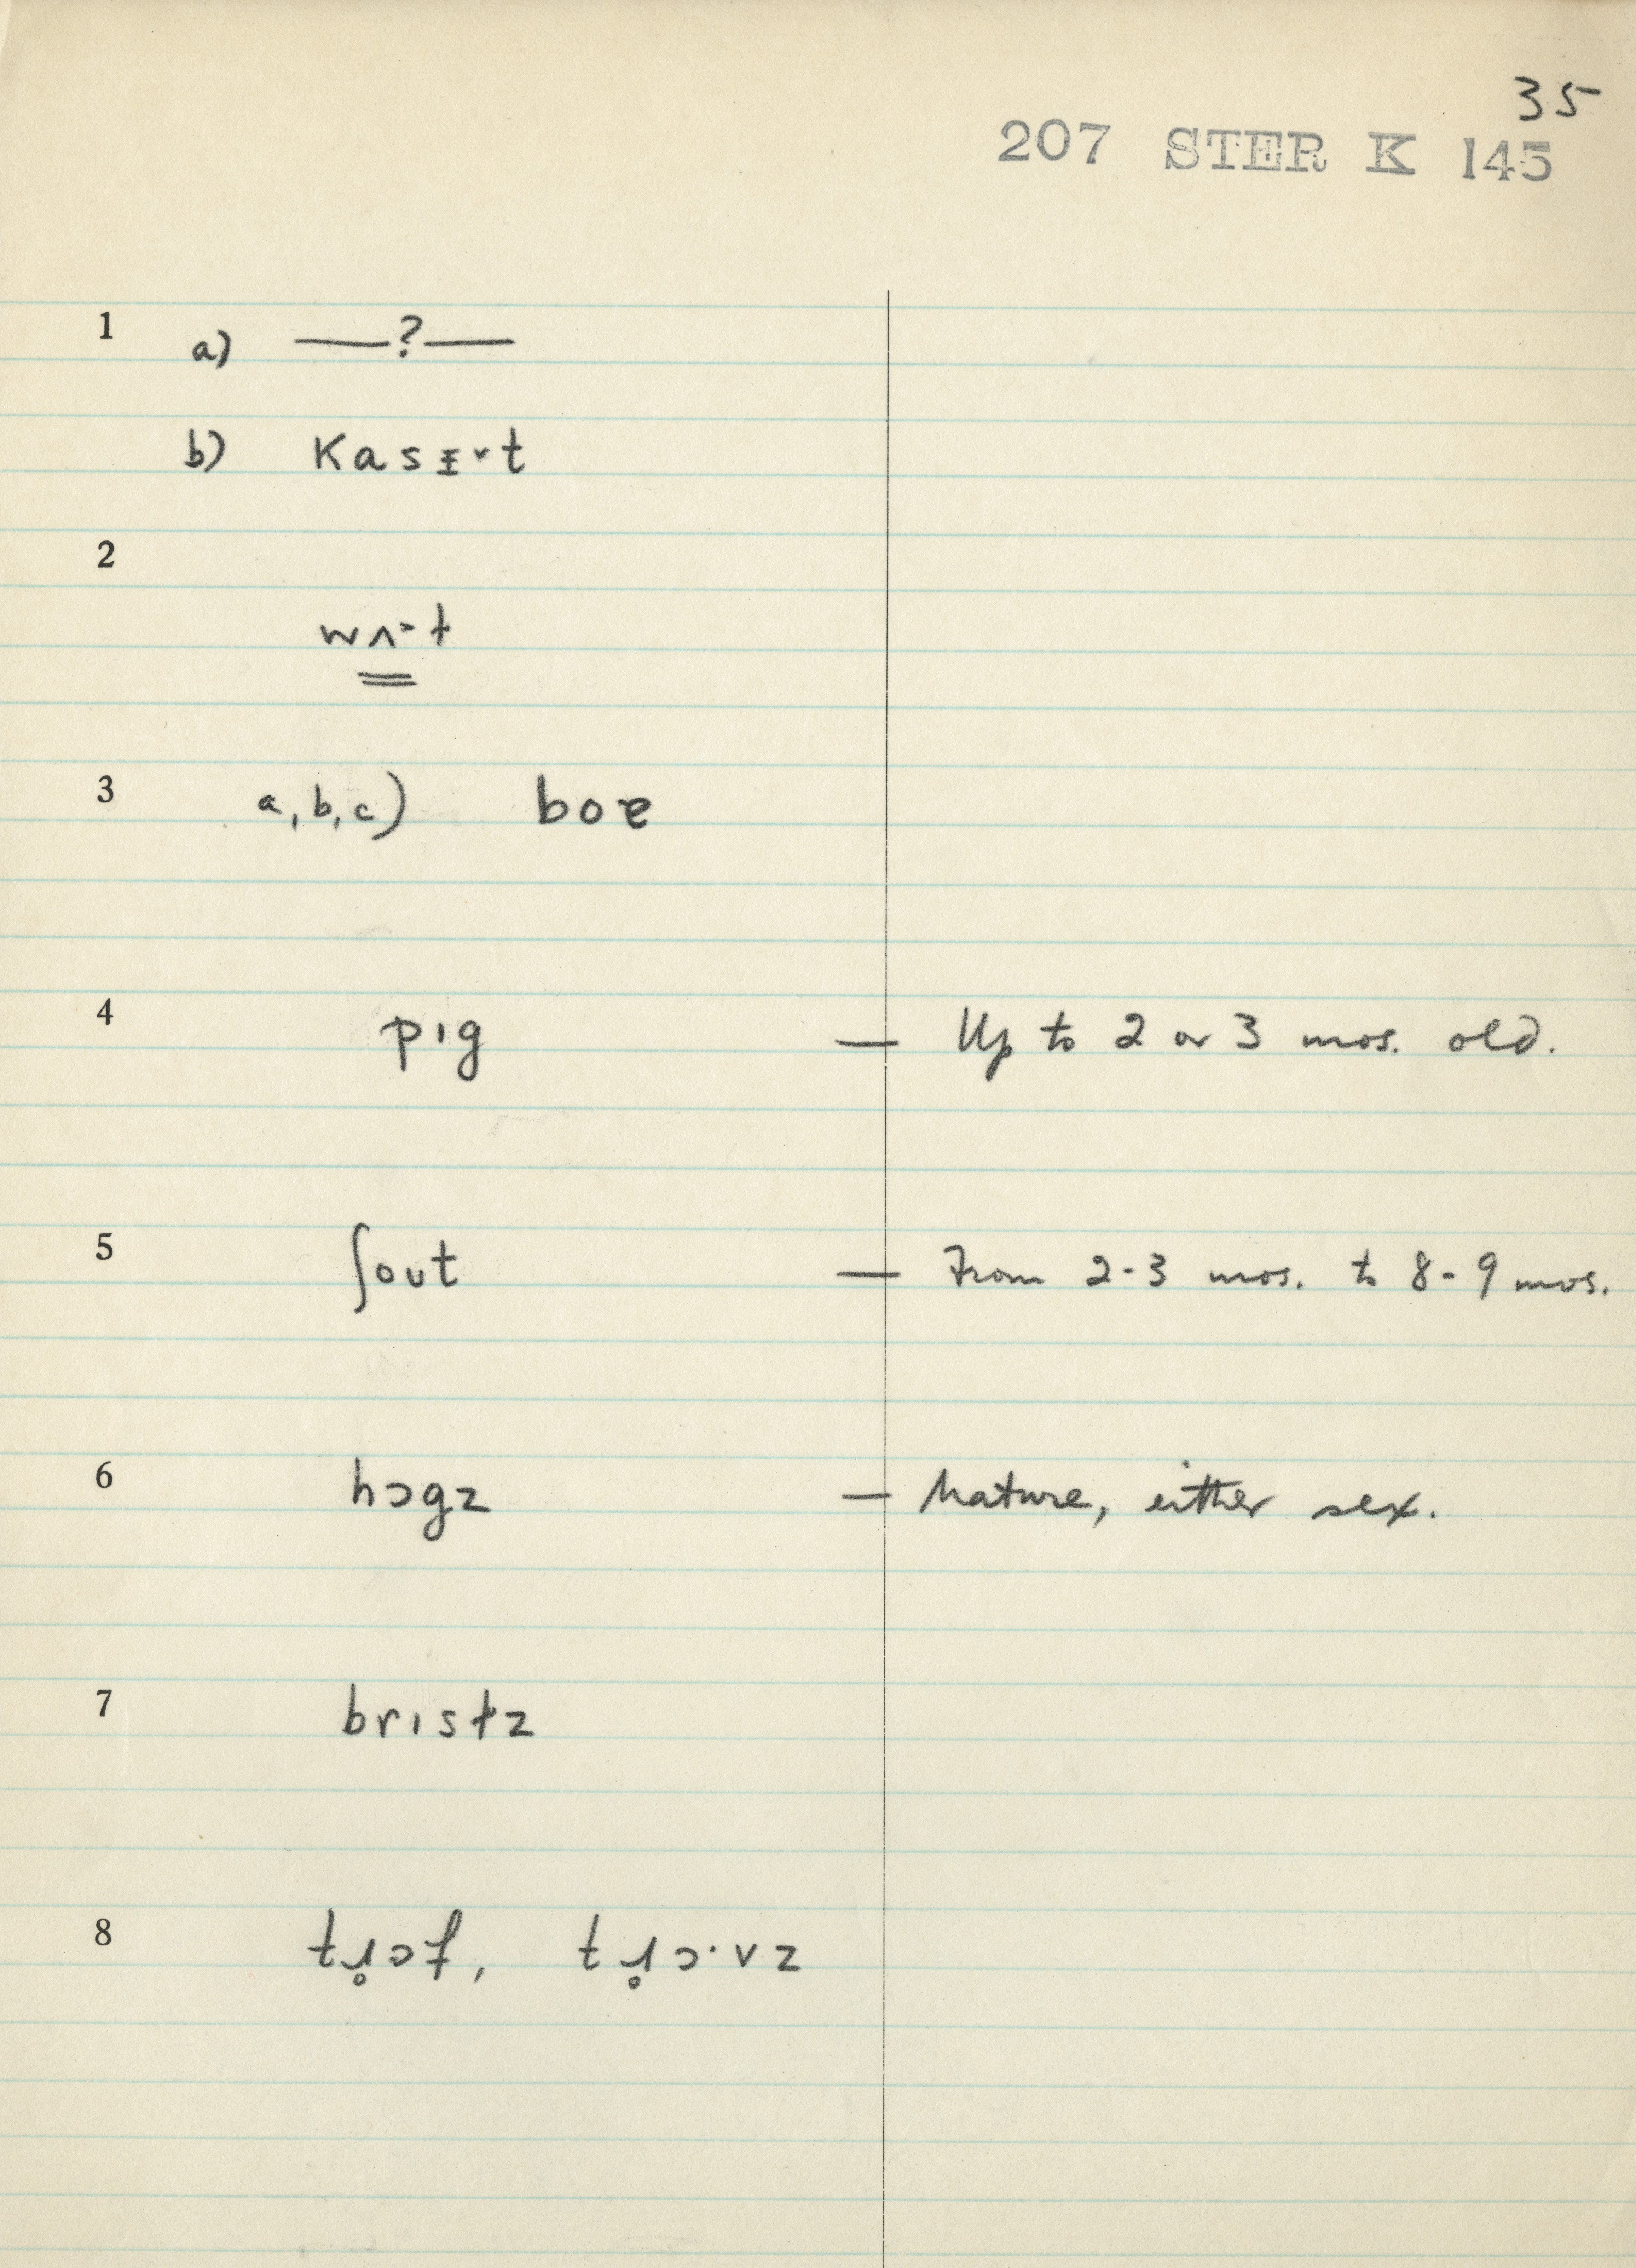 35
207 STER K 145
1 a) —?—
b) kasɪ˅t
2
wʌ˃t
3 a, b, c) boɐ
4 pɪg — Up to 2 or 3 mos. old.
5 ʃout — From 2-3 mos. to 8-9 mos.
6 hɔgz — Mature, either sex.
7 brɪstz
8 tɹ̥ɔf, tɹ̥ɔ·vz